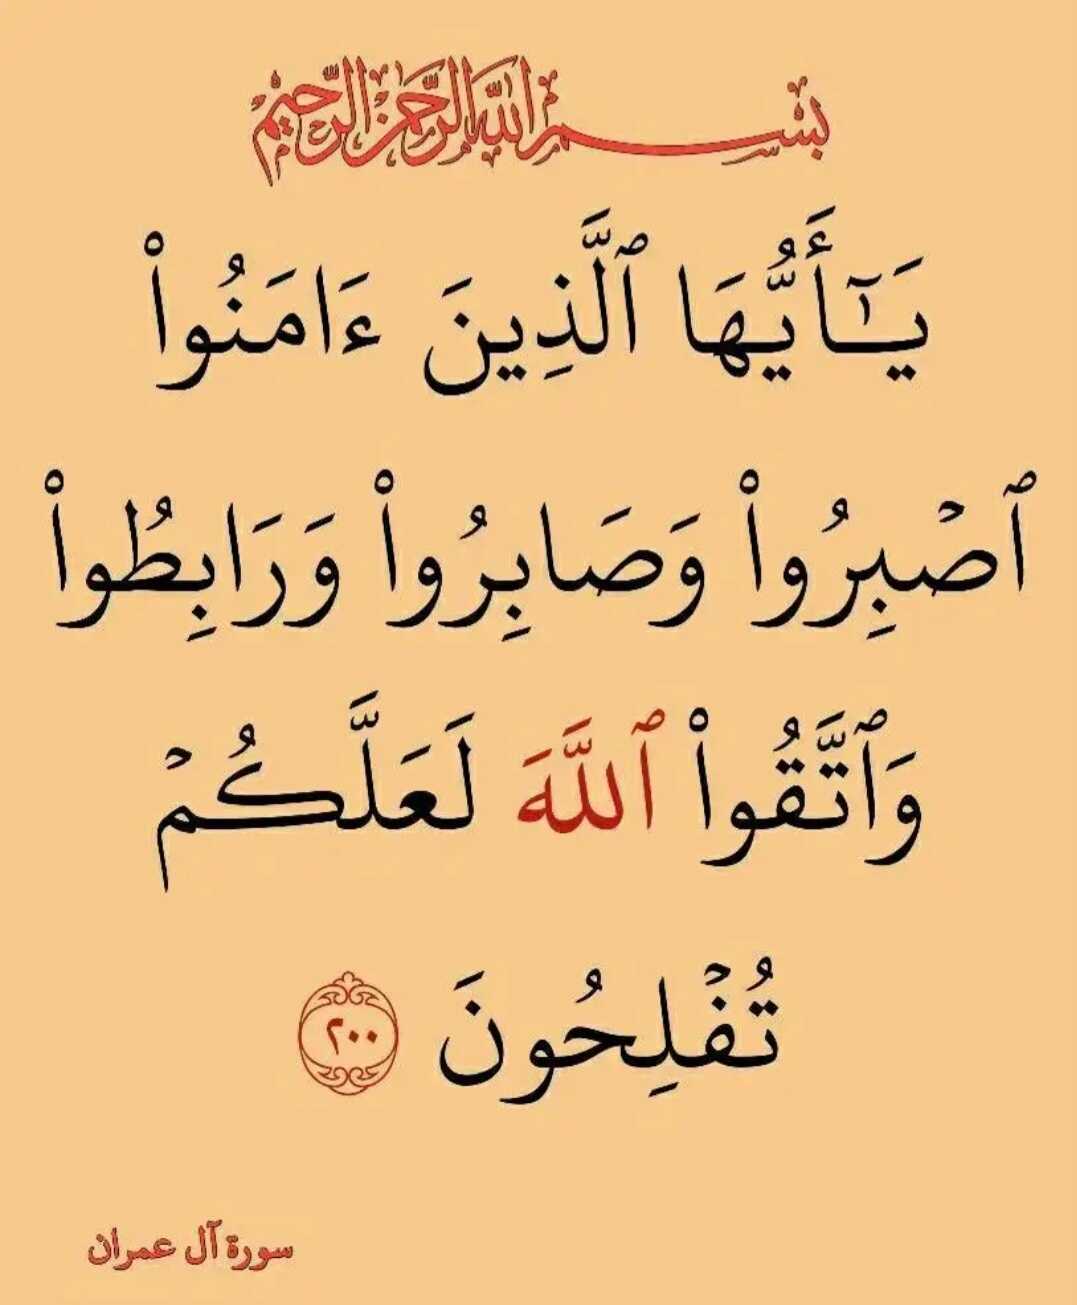 بِسْمِ اللَّهِ الرَّحْمَٰنِ الرَّحِيمِ
يَـٰٓأَيُّهَا ٱلَّذِينَ ءَامَنُوا۟
ٱصْبِرُوا۟ وَصَابِرُوا۟ وَرَابِطُوا۟
وَٱتَّقُوا۟ ٱللَّهَ لَعَلَّكُمْ
تُفْلِحُونَ ٢٠٠
سورة آل عمران